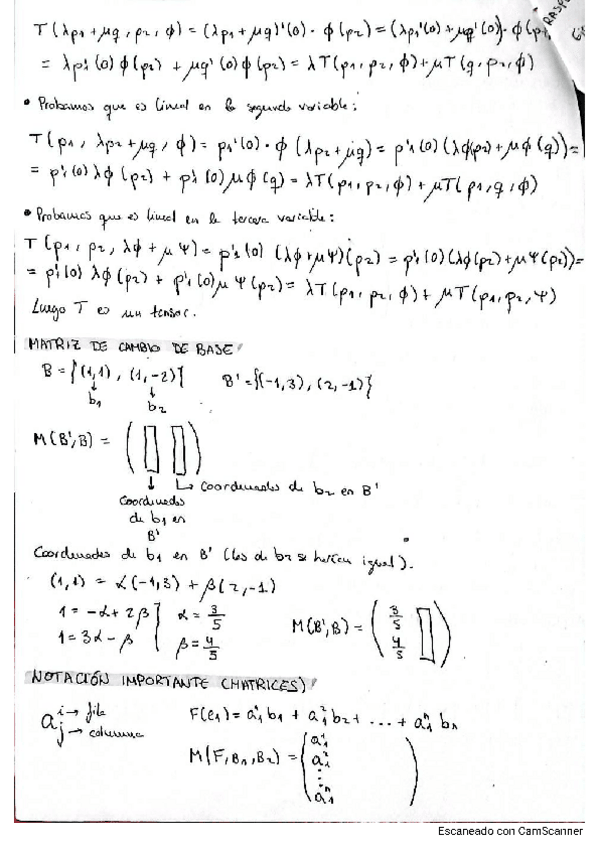 T(λp₁+μq, p₂, φ) = (λp₁+μq)'(0)·φ(p₂) = (λp₁'(0)+μq'(0))·φ(p₂
= λp₁'(0)φ(p₂) + μq'(0)φ(p₂) = λT(p₁,p₂,φ)+μT(q,p₂,φ)
• Probamos que es lineal en la segunda variable:
T(p₁, λp₂+μq, φ) = p₁'(0)·φ(λp₂+μq) = p₁'(0)(λφ(p₂)+μφ(q)) =
= p₁'(0)λφ(p₂) + p₁'(0)μφ(q) = λT(p₁,p₂,φ) + μT(p₁,q,φ)
• Probamos que es lineal en la tercera variable:
T(p₁, p₂, λφ+μΨ) = p₁'(0)(λφ+μΨ)(p₂) = p₁'(0)(λφ(p₂)+μΨ(p₂)) =
= p₁'(0)λφ(p₂) + p₁'(0)μΨ(p₂) = λT(p₁,p₂,φ) + μT(p₁,p₂,Ψ)
Luego T es un tensor.
MATRIZ DE CAMBIO DE BASE
B = {(1,1), (1,-2)} B' = {(-1,3), (2,-1)}
b₁ b₂
M(B',B) = ( )
↳ Coordenadas de b₂ en B'
Coordenadas
de b₁ en
B'
Coordenadas de b₁ en B' (las de b₂ se harían igual).
(1,1) = α(-1,3) + β(2,-1)
1 = -α+2β α = 3/5
1 = 3α-β β = 4/5
M(B',B) = ( 3/5 4/5 )
NOTACIÓN IMPORTANTE (MATRICES)
aⁱⱼ i → fila j → columna
F(e₁) = a¹₁b₁ + a²₁b₂ + ... + aⁿ₁bₙ
M(F,B₁,B₂) = ( a¹₁ a²₁ ⋮ aⁿ₁ )
Escaneado con CamScanner